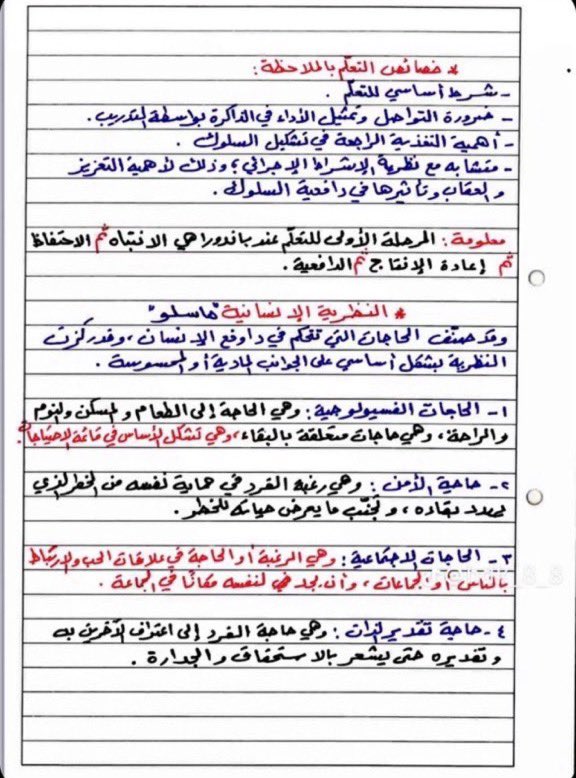 * خصائص التعلّم بالملاحظة:
- شرط أساسي للتعلّم.
- ضرورة التواصل وتمثيل الأداء في الذاكرة بواسطة التدريب.
- أهمية التغذية الراجعة في تشكيل السلوك.
- متشابه مع نظرية الإشراط الإجرائي؛ وذلك لأهمية التعزيز
والعقاب وتأثيرها في دافعية السلوك.
معلومة: المرحلة الأولى للتعلّم عند باندورا هي الانتباه ثم الاحتفاظ
ثم إعادة الإنتاج ثم الدافعية.
* النظرية الإنسانية "ماسلو"
وقد صنّف الحاجات التي تتحكم في دوافع الإنسان، وقد ركزت
النظرية بشكل أساسي على الجوانب المادية أو المحسوسة.
١- الحاجات الفسيولوجية: وهي الحاجة إلى الطعام والمسكن والنوم
والراحة، وهي حاجات متعلقة بالبقاء، وهي تشكل الأساس في قائمة الاحتياجات.
٢- حاجة الأمن: وهي رغبة الفرد في حماية نفسه من الخطر الذي
يهدد بقاءه، وتجنّب ما يعرض حياته للخطر.
٣- الحاجات الاجتماعية: وهي الرغبة أو الحاجة في علاقات الحب والارتباط
بالناس أو الجماعات، وأن يجد في لنفسه مكانًا في الجماعة.
٤- حاجة تقدير الذات: وهي حاجة الفرد إلى اعتراف الآخرين به
وتقديره حتى يشعر بالاستحقاق والجدارة.